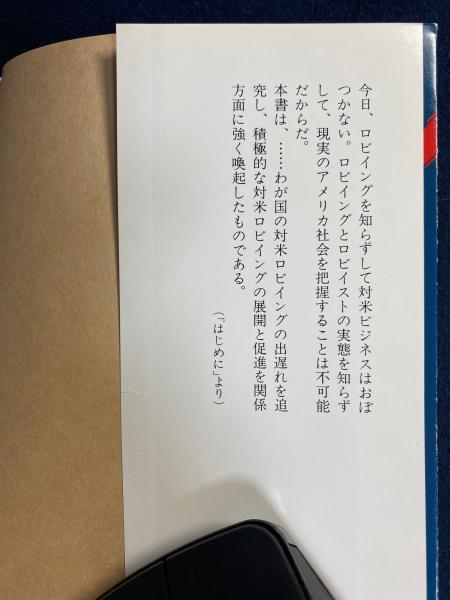 今日、ロビイングを知らずして対米ビジネスはおぼ
つかない。ロビイングとロビイストの実態を知らず
して、現実のアメリカ社会を把握することは不可能
だからだ。
本書は、……わが国の対米ロビイングの出遅れを追
究し、積極的な対米ロビイングの展開と促進を関係
方面に強く喚起したものである。
（「はじめに」より）